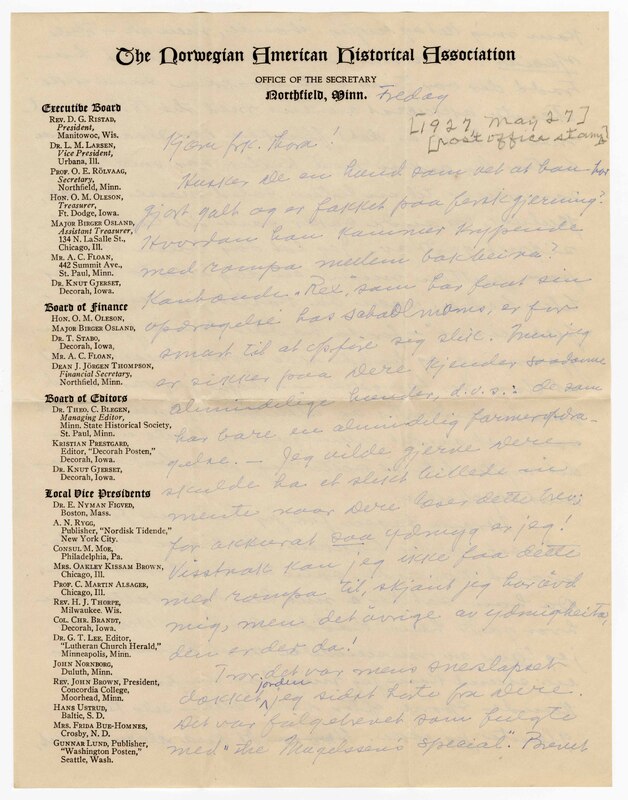 The Norwegian American Historical Association
OFFICE OF THE SECRETARY
Northfield, Minn.
Fredag
[1927 May 27]
[post office stamp]
Executive Board
REV. D. G. RISTAD,
President,
Manitowoc, Wis.
DR. L. M. LARSEN,
Vice President,
Urbana, Ill.
PROF. O. E. RÖLVAAG,
Secretary,
Northfield, Minn.
HON. O. M. OLESON,
Treasurer,
Ft. Dodge, Iowa.
MAJOR BIRGER OSLAND,
Assistant Treasurer,
134 N. LaSalle St.,
Chicago, Ill.
MR. A. C. FLOAN,
442 Summit Ave.,
St. Paul, Minn.
DR. KNUT GJERSET,
Decorah, Iowa.
Board of Finance
HON. O. M. OLESON,
MAJOR BIRGER OSLAND,
DR. T. STABO,
Decorah, Iowa.
MR. A. C. FLOAN,
DEAN J. JÖRGEN THOMPSON,
Financial Secretary,
Northfield, Minn.
Board of Editors
DR. THEO. C. BLEGEN,
Managing Editor,
Minn. State Historical Society,
St. Paul, Minn.
KRISTIAN PRESTGARD,
Editor, "Decorah Posten,"
Decorah, Iowa.
DR. KNUT GJERSET,
Decorah, Iowa.
Local Vice Presidents
DR. E. NYMAN FIGVED,
Boston, Mass.
A. N. RYGG,
Publisher, "Nordisk Tidende,"
New York City.
CONSUL M. MOE,
Philadelphia, Pa.
MRS. OAKLEY KISSAM BROWN,
Chicago, Ill.
PROF. C. MARTIN ALSAGER,
Chicago, Ill.
REV. H. J. THORPE,
Milwaukee. Wis.
COL. CHR. BRANDT,
Decorah, Iowa.
DR. G. T. LEE, Editor,
"Lutheran Church Herald,"
Minneapolis, Minn.
JOHN NORNBORG,
Duluth, Minn.
REV. JOHN BROWN, President,
Concordia College,
Moorhead, Minn.
HANS USTRUD,
Baltic, S. D.
MRS. FRIDA BUE-HOMNES,
Crosby, N. D.
GUNNAR LUND, Publisher,
"Washington Posten,"
Seattle, Wash.
Kjære frk. Thora!
Husker De en hund som vet at han har
gjort galt og er fakket paa fersk gjerning?
Hvordan han kommer krypende
med rompa mellem bakbeina?
Kanhænde "Rex", som har faat sin
opdragelse hos mams, er for
smart til at opføre sig slik. Men jeg
er sikker paa Dere kjender saadanne
almindelige hunder, d.v.s.: de som
har bare en almindelig farmeropdra-
gelse. — Jeg vilde gjerne Dere
skulde ha et slikt billede in
mente naar Dere læser dette brev;
for akkurat saa ydmyg er jeg!
Visstnok kan jeg ikke faa dette
med rompa til, skjønt jeg har øvd
mig, men det øvrige av ydmigheita,
den er der da!
Tror det var mens sneslapset
dækket jorden jeg sidst hørte fra Dere.
Det var følgebrevet som fulgte
med "the Magelssen's special". Brevet